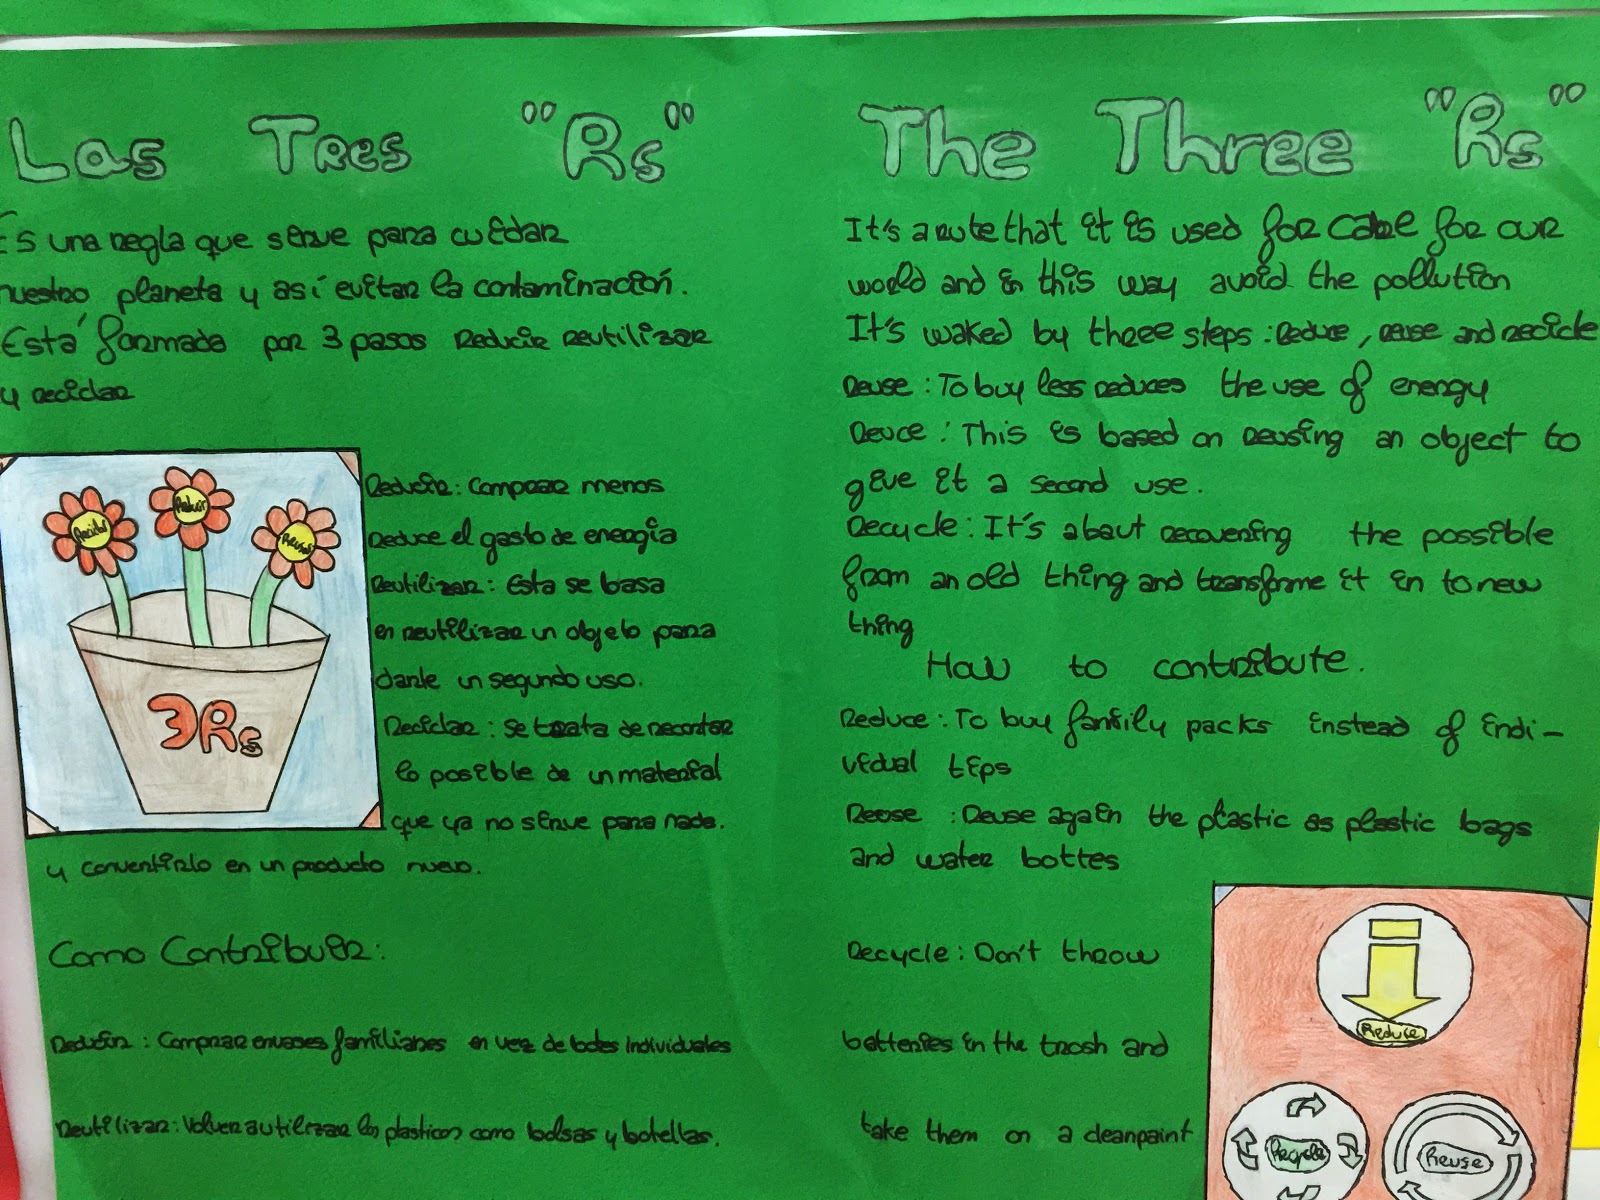 Las Tres "Rs"
Es una regla que sirve para cuidar
nuestro planeta y así evitar la contaminación.
Está formada por 3 pasos Reducir reutilizar
y reciclar
Reciclar
Reducir
Reusar
3Rs
Reducir: Comprar menos
Reduce el gasto de energía
Reutilizar: Esta se basa
en reutilizar un objeto para
darle un segundo uso.
Reciclar: Se trata de recortar
lo posible de un material
que ya no sirve para nada.
y convertirlo en un producto nuevo.
Como Contribuir:
Reducir: Comprar envases familiares en vez de botes individuales
Reutilizar: Volver a utilizar los plasticos como bolsas y botellas.
The Three "Rs"
It's a rute that it is used for care for our
world and in this way avoid the pollution
It's waked by three steps: Reduce, reuse and recicle
Reuse: To buy less reduces the use of energy
Reuce: This is based on reusing an object to
give it a second use.
Recycle: It's about recovering the possible
from an old thing and transforme it in to new
thing
How to contribute.
Reduce: To buy family packs instead of indi-
vidual tips
Reose: Reuse again the plastic as plastic bags
and water bottes
Recycle: Don't throw
batteries in the trash and
take them on a cleanpaint
Reduce
Recycle
Reuse